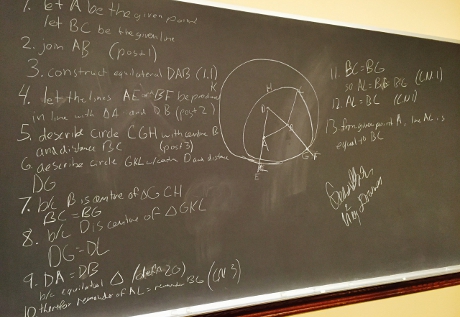 1. let A be the given point
let BC be the given line
2. join AB (post 1)
3. construct equilateral DAB (1.1)
4. let the lines AE BF be produced
in line with DA and DB (post 2)
5. describe circle CGH with centre B
and distance BC (post 3)
6. describe circle GKL w/centre D and distance
DG
7. b/c B is centre of GCH
BC = BG
8. b/c D is centre of GKL
DG = DL
9. DA = DB
b/c equilateral Δ (def 20)
10. therefor remainder of AL = remainder BG (CN3)
K
H
C
D
B
A
G
F
L
E
11. BC = BG
so AL = BG = BC (CN1)
12. AL = BC (CN1)
13. from given point A, line AL is
equal to BC